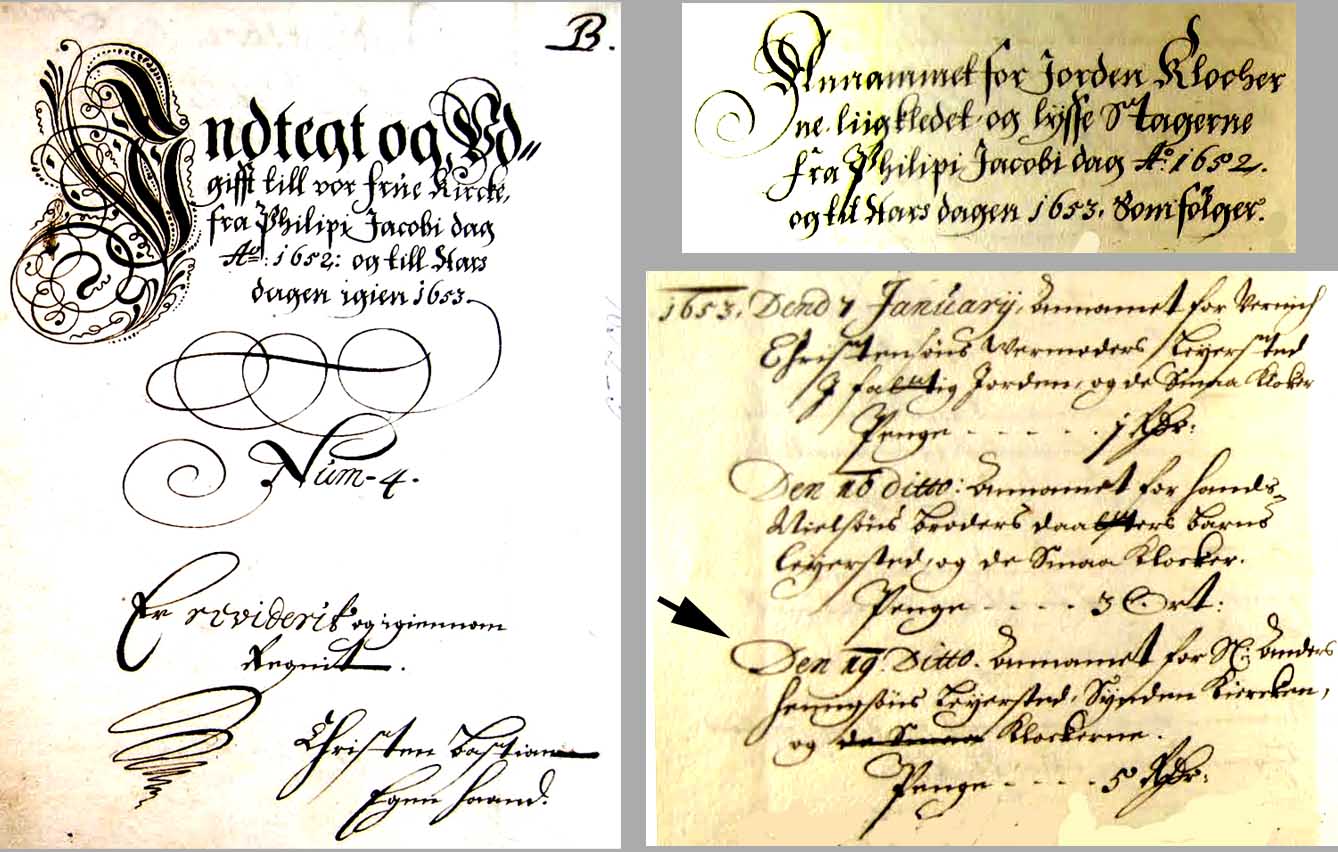 B.
Indtegt og Vd=
gifft till vor frue Kircke,
fra Philipi Jacobi dag
Aº: 1652: og till Aars
dagen igien 1653.
Num-4.
Er rewiderit og igiennom
Regnit.
Christen Bastian
Egen haand.
Annammet for Jorden Klocher
ne liigkledet og lysse Stagerne
fra Philipi Jacobi dag Aº 1652.
og til Aars dagen 1653. Som følger.
1653. Dend 7 Januarij, Annamet for
Christensøns Leyersted
Jorden, og de Smaa Klocker
Penge - - - - - - 1 Rdr:
Den 16 ditto: Annamet for hands
Nielsøns broders barns
Leyersted, og de Smaa Klocker.
Penge - - - - 3 Ort:
Den 19. Ditto. Annamet for Sl: Anders
Leyersted, Synden Kiercken,
og de Smaa Klockerne.
Penge - - - - 5 Rdr: